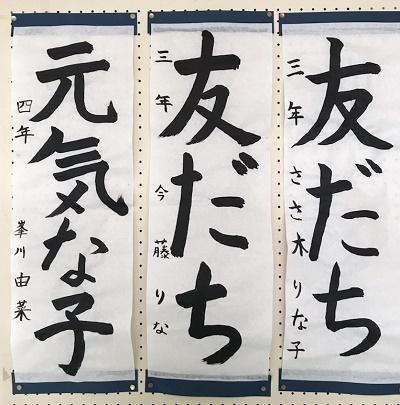 友だち
三年 ささ木りな子
友だち
三年 今藤りな
元気な子
四年 峯川由菜